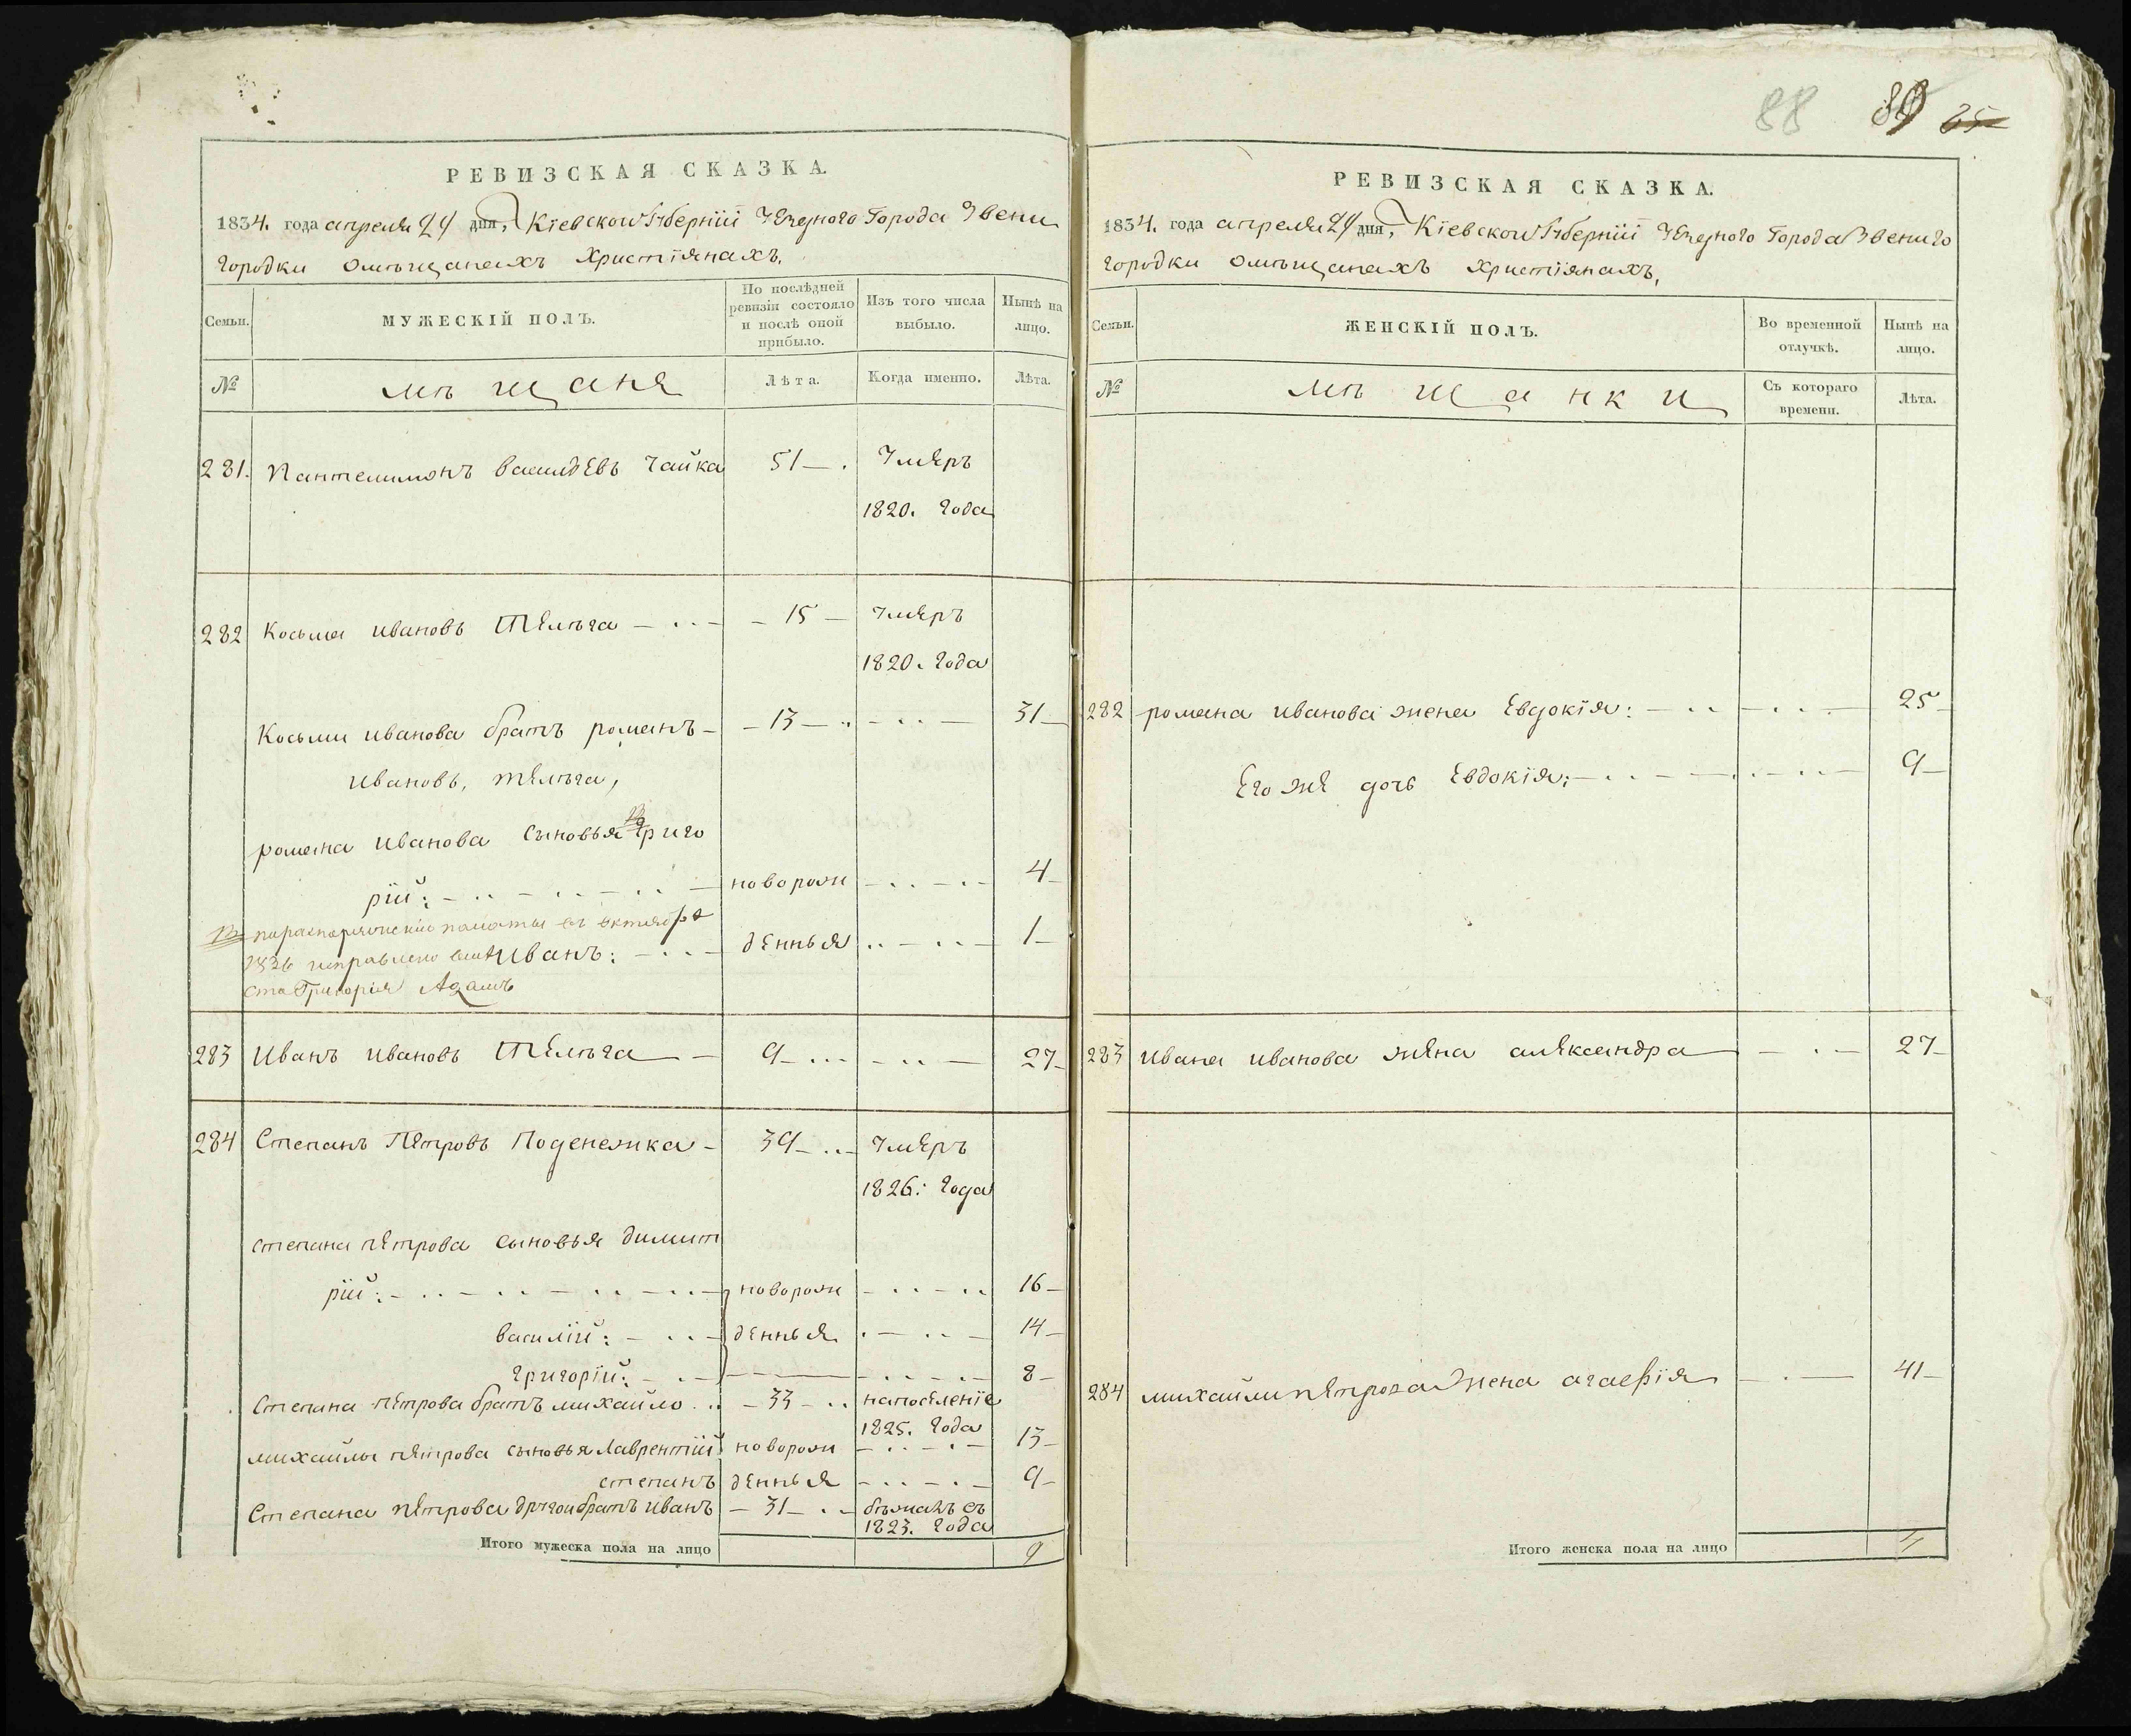 88 89 85
РЕВИЗСКАЯ СКАЗКА.
1834. года апреля 24 дня, Кіевской Губерніи Уезднаго Города Звени
городки омѣщанахъ христіянахъ.
Семьи.
МУЖЕСКІЙ ПОЛЪ.
По послѣдней ревизіи состояло и послѣ оной прибыло.
Изъ того числа выбыло.
Нынѣ на лицо.
№
мѣщане
Лѣта.
Когда именно.
Лѣта.
281. Пантелимонъ васильевъ Чайка 51 Умеръ
1820. года
282 Косьма ивановъ Телѣга 15 Умеръ
1820. года
Косьми иванова братъ романъ 13 31
ивановъ, телѣга,
романа иванова сыновья Григо
рій: новорож 4
иванъ: денныя 1
1836 исправлено вмѣ
ста Григорія Адамъ
283 Иванъ ивановъ Телѣга 9 27
284 Степанъ Петровъ Поденежка 39 Умеръ
1826: года
степана петрова сыновья димит
рій: новорож 16
василій: денныя 14
григорій: 8
Степана петрова братъ михайло 33 напоселеніе
1825. года
михайлы петрова сыновья Лаврентій новорож 13
степанъ денныя 9
Степана петрова другои братъ иванъ 31 бѣжалъ съ
1823. года
Итого мужеска пола на лицо 9
РЕВИЗСКАЯ СКАЗКА.
1834. года апреля 24 дня, Кіевской Губерніи Уезднаго Города Звениго
городки омѣщанахъ христіянахъ,
Семьи.
ЖЕНСКІЙ ПОЛЪ.
Во временной отлучкѣ.
Нынѣ на лицо.
№
мѣщанки
Съ котораго времени.
Лѣта.
282 романа иванова жена Евдокія: 25
Его же дочь Евдокія: 9
283 Ивана иванова жена александра 27
284 михайли петрова жена агафія 41
Итого женска пола на лицо